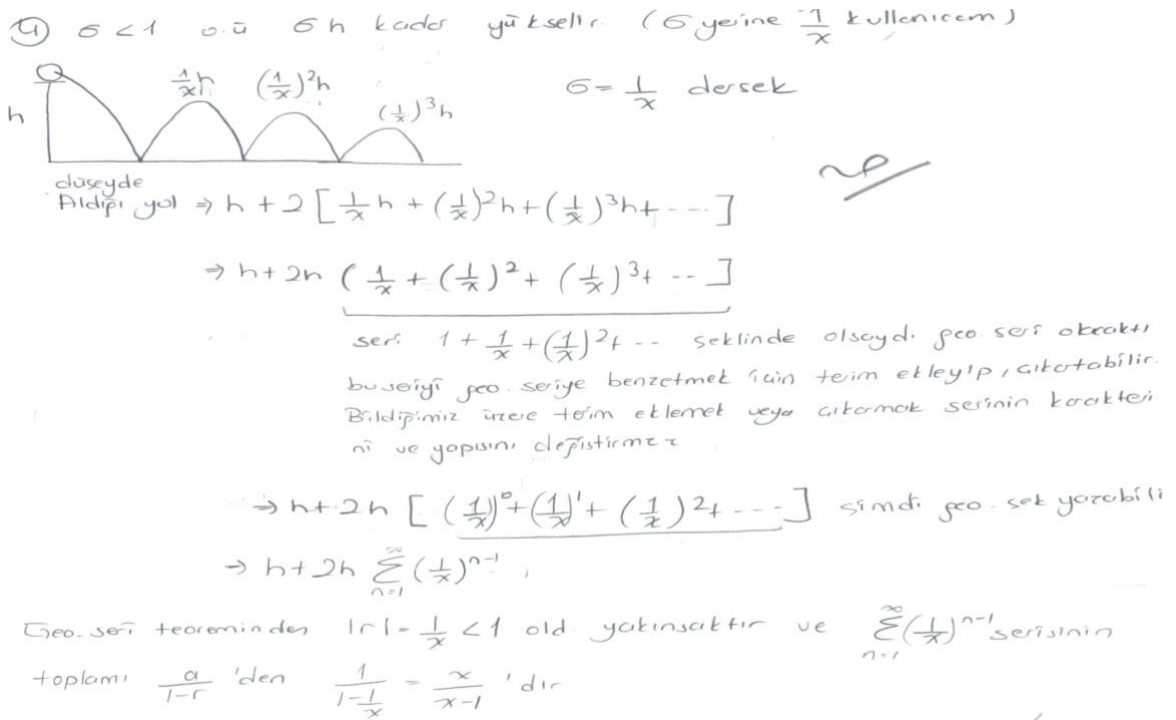 ④ σ<1 o.ü σh kadar yükselir. (σ yerine 1/x kullanıcam)
1/x h (1/x)²h (1/x)³h
h
σ = 1/x dersek
düşeyde
Aldığı yol ⇒ h + 2 [1/x h + (1/x)²h + (1/x)³h + ---]
⇒ h + 2h (1/x + (1/x)² + (1/x)³ + --]
seri 1 + 1/x + (1/x)² + -- şeklinde olsaydı geo. seri olcaktı
bu seriyi geo. seriye benzetmek için terim ekleyip, çıkartabilir.
Bildiğimiz üzere terim eklemek veya çıkarmak serinin karakteri
ni ve yapısını değiştirmez
⇒ h + 2h [(1/x)⁰ + (1/x)¹ + (1/x)² + ---] şimdi geo. sek yazabili
→ h + 2h ∞Σn=1 (1/x)ⁿ⁻¹,
Geo. seri teoreminden |r| = 1/x < 1 old. yakınsaktır ve ∞Σn=1 (1/x)ⁿ⁻¹ serisinin
toplamı a/1-r 'den 1/1-1/x = x/x-1 'dir